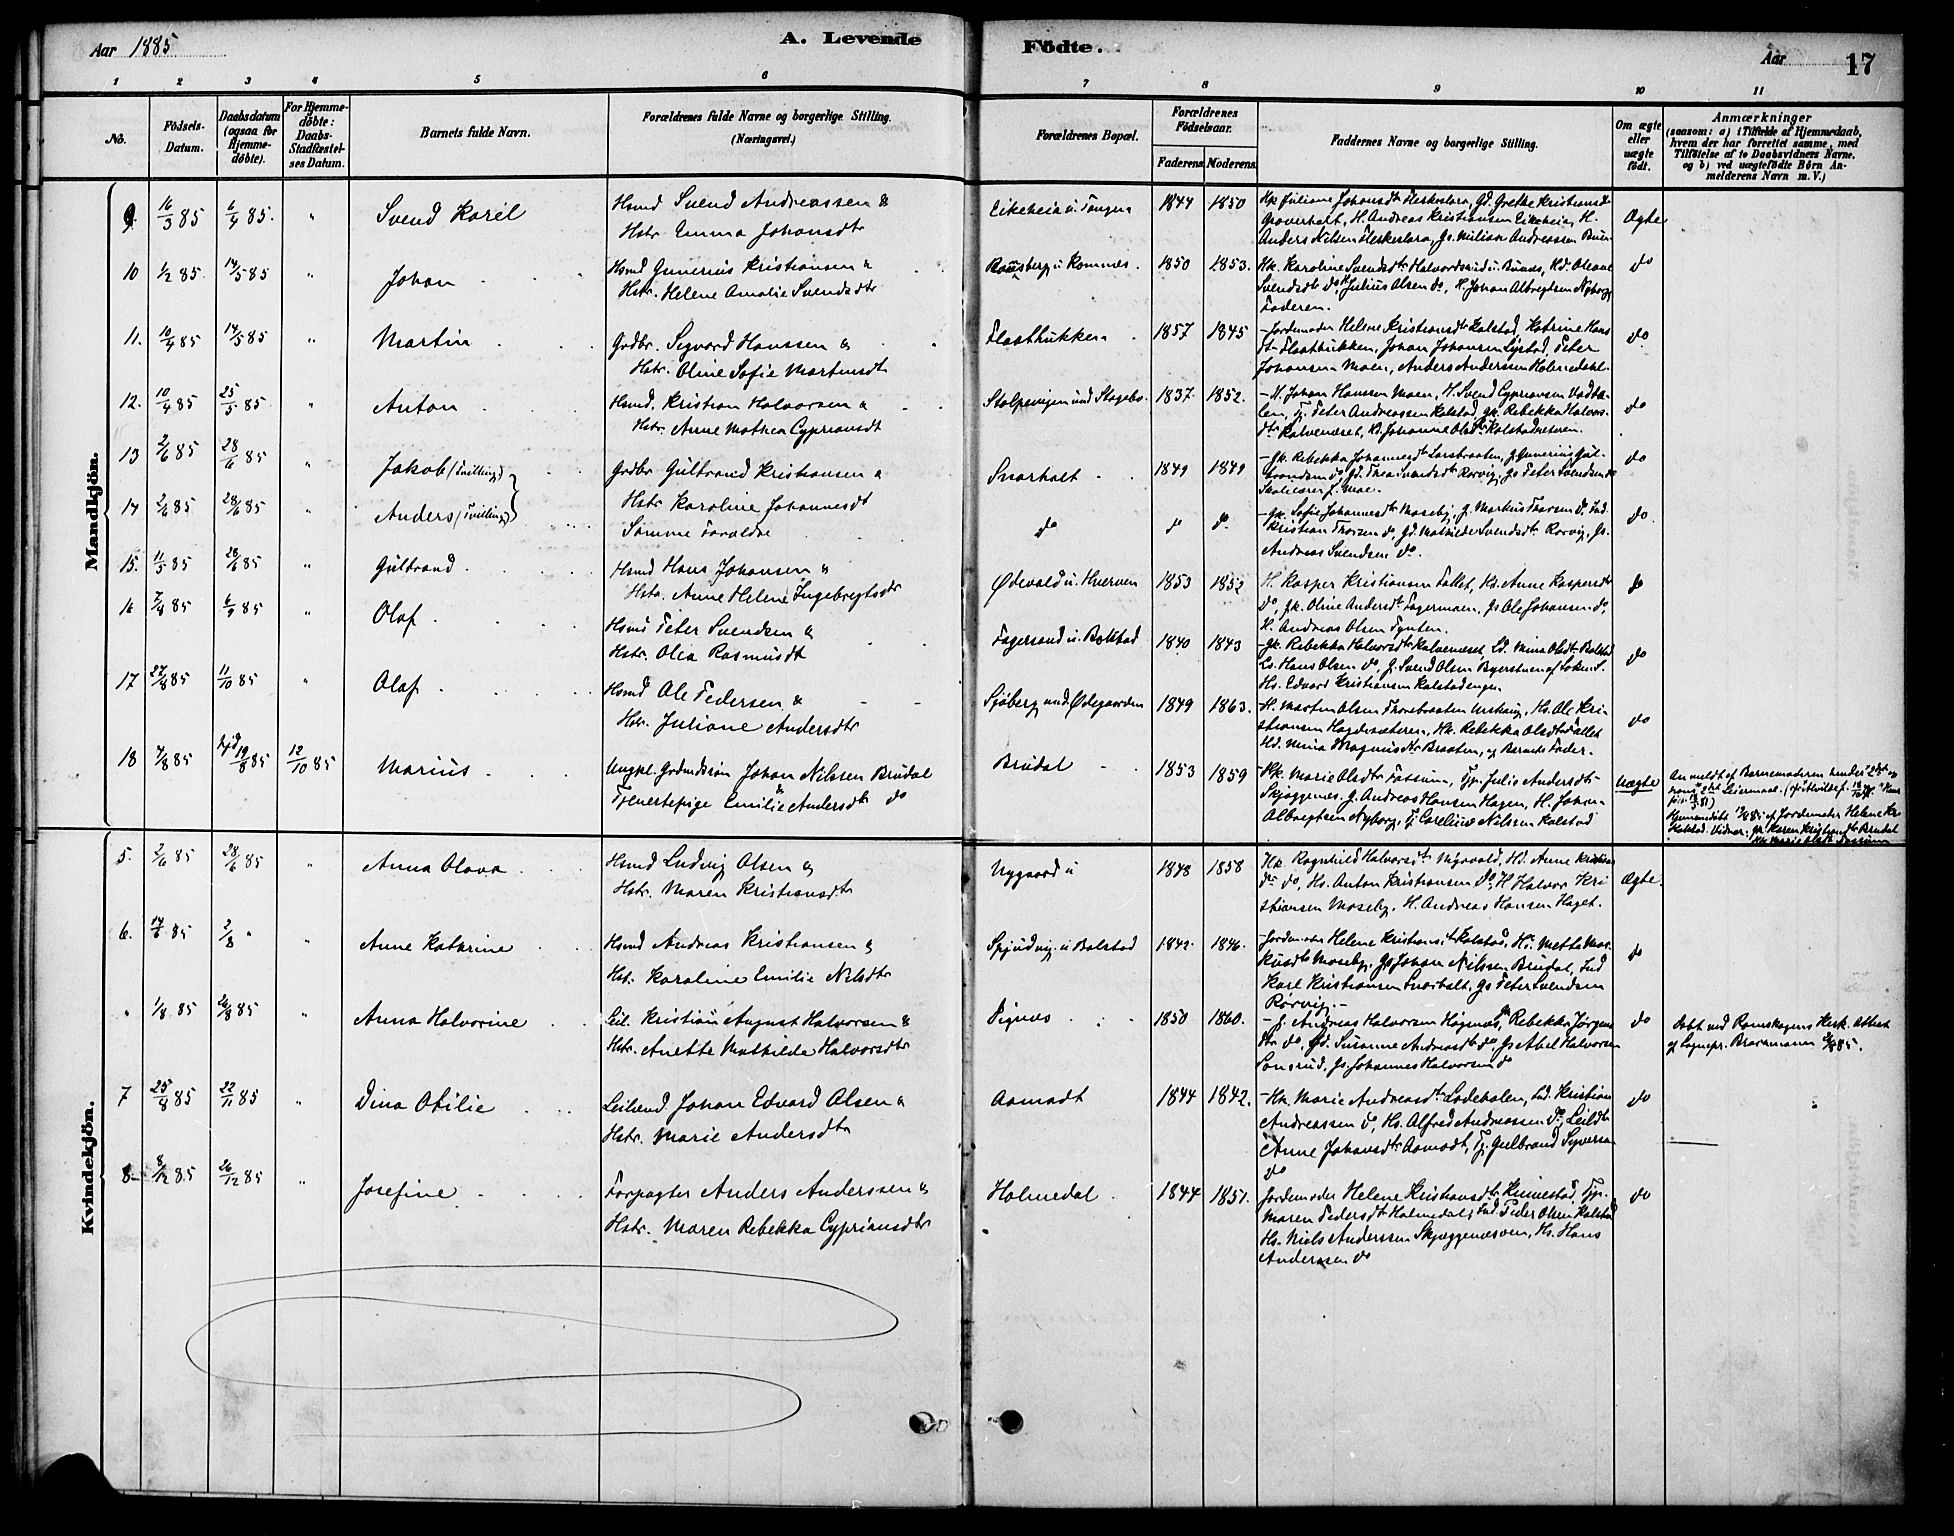 Aar 1885
A. Levende
Födte.
Aar
17
1 2 3 4 5 6 7 8 9 10 11
No.
Födsels-
Datum.
Daabsdatum
(ogsaa for
Hjemme-
döbte).
For Hjemme-
döbte:
Daabs-
Stadfæstel-
ses Datum.
Barnets fulde Navn.
Forældrenes fulde Navne og borgerlige Stilling.
(Næringsvei.)
Forældrenes Bopæl.
Forældrenes
Födselsaar.
Faderens. Moderens.
Faddernes Navne og borgerlige Stilling.
Om ægte
eller
uægte
födt.
Anmærkninger
(saasom: a) i Tilfælde af Hjemmedaab,
hvem der har forrettet samme, med
Tilföielse af to Daabsvidners Navne,
og b) ved uægtefödte Börn An-
melderens Navn m. V.)
Mandkjön.
9. 16/3 85 6/4 85. " Svend Karel
Hsmd Svend Andreassen &
Hstr. Emma Johansdtr
Eikeheia u. Tangen 1844 1850
Hk. Juliane Johansdtr Heskeslara, Gd. Grethe Kristiansdtr
Graverholt, H. Andreas Kristiansen Eikeheia, H.
Anders Nilsen Heskeslara, Gs. Andreassen
Ægte
10 1/2 85. 14/5 85 " Johan
Hsmd Gunerius Kristiansen &
Hstr. Helene Amalie Svendsdtr
u. Kommes. 1850 1853.
Hk. Karoline Svendsdtr u. Bunes, Hd. Oleane
Svendsdtr do, Julius Olsen do, H. Johan Albregtsen Nyborg,
Faderen.
do
11. 10/4 85 14/5 85 " Martin
Grdbr. Sigvard Hanssen &
Hstr. Oline Sofie Martinsdt
Flaathukken 1857 1845
Jordemoder Helene Kristiansdtr Kolstad, Katrine Hans
dt Flaathukken, Johan Johansen Lystad, Peter
Johansen Moen, Anders Andersen Holmedahl.
do
12. 10/4 85 25/5 85. " Anton
Hsmd. Kristian Halvorsen &
Hstr. Anne Mathea Cypriansdt
Stolpevigen und Stagebo. 1837 1852.
H. Johan Hansen Moen, H. Svend Cypriansen
Tj. Peter Andreassen Kolstad, Gk. Rebekka Halvors
dtr Kalvenæset, Johanne Olsdtr
do
13 2/6 85 28/6 85 " Jakob (Tvilling)
Grdbr Gulbrand Kristiansen &
Hstr Karoline Johannesdt
Snarholt 1849 1849
Gk. Rebekka Johannesdtr Larsbraaten, G. Gunerius Gul-
brandsen do, Gd. Thea Svendsdtr Rørvig, Gs Peter Svendsen do
Skolelærer J. Moe.
do
14 2/6 85 28/6 85 " Anders (Tvilling)
Samme Forældre
do do do
Gk. Sofie Johannesdtr Moseby, G. Markus Thorsen do, Ind.
Kristian Thorsen do, Gd. Mathilde Svendsdtr Rørvig, Gs.
Andreas Svendsen do.
do.
15. 11/5 85 28/6 85 " Gulbrand
Hsmd Hans Johansen &
Hstr. Anne Helene Ingebregtsdtr
Ødevald u. Hverven 1853 1852
H. Kasper Kristiansen Fallet, Hs. Anne Kaspersdtr
do, Gk. Oline Andersdtr Fagermoen, Gs Ole Johansen do,
H. Andreas Olsen Tynten.
do
16 7/8 85 6/9 85 " Olaf
Hsmd Peter Svendsen &
Hstr. Olea Rasmusdt
Fagersand u. Bolstad 1840 1843
Gk. Rebekka Halvorsdtr Kalvenæset, Ld. Mina Olsdtr Bolstad
Ls. Hans Olsen do, G. Svend Olsen
Hs. Edvard Kristiansen Kolstadengen.
do
17 27/8 85 11/10 85 " Olaf
Hsmd Ole Pedersen &
Hstr. Juliane Andersdtr
Sjöberg und. Ødegaarden 1849 1863.
H. Martin Olsen Urskoug, Hs. Ole Kri-
stiansen Hagdesæteren, Hk. Rebekka Olsdtr Fallet
Hd. Mina Magnusdtr Braaten, og Barnets Fader.
do
18 7/8 85 hjd 19/8 85 12/10 85 Marius
Ungkl. Grdmdssøn Johan Nilsen Brudal
& Tjenestepige Emilie Andersdtr do
Brudal 1853 1859
Hk. Marie Olsdtr Fossum, Tjp. Julie Andersdtr
Skjæggenæs, G. Andreas Hansen Hagen, H. Johan
Albregtsen Nyborg, Tj. Carelius Nilssen Kolstad
Uægte
Anmeldt af Barnemoderen hendes 2det og
hans 2det Leiermaal.
Hjemmedøbt 19/8 85 af Jordemoder Helene Kr
Kolstad. Vidner: Karen Kristiansdtr Brudal
Hk. Marie Olsdtr Fossum
Kvindekjön.
5. 2/6 85 28/6 85 " Anna Olava
Hsmd Ludvig Olsen &
Hstr. Maren Kristiansdtr
Nygaard u 1848 1858
Hk. Ragnhild Halvorsdtr Nyvold, Hd. Anne Kristians
dtr do, Hs. Anton Kristiansen do, H Halvor Kri
stiansen Moseby, H. Andreas Hansen Haget.
Ægte.
6. 14/6 85 2/8 " " Anne Kathrine
Hsmd Andreas Kristiansen &
Hst. Karoline Emilie Nilsdtr
Spjudvig u Bolstad 1842 1846.
Jordemoder Helene Kristiansdtr Kolstad, Hs. Mette Mar-
kusdtr Moseby, Gs Johan Nilssen Brudal, Ind
Karl Kristiansen Snarholt, Gs Peter Svendsen
Rørvig.
do
" 1/8 85 26/8 85 " Anna Halvorine
Leil. Kristian August Halvorsen &
Hstr. Anette Mathilde Halvorsdtr
Tignes 1850 1860.
G. Andreas Halvorsen Høgnes, Gk Rebekka Jørgens
dtr do, Gd. Susanne Andreasdtr do Gs Abel Halvorsen
Sonsrud, Gs. Johannes Halvorsen do
do
Døbt ved Romskogens Kirk. Attest
af Sognepr. Brockmann 85.
7 25/8 85 22/11 85 " Dina Otilie
Leilænd. Johan Edvard Olsen &
Hstr. Marie Andersdtr
Aamodt 1844 1842.
Hk. Marie Andreasdtr Lodeholen, Ind. Kristian
Andreassen do, Hs. Alfred Andreassen do, Leildtr
Anne Johansdtr Aamodt, Tj. Gulbrand Syversen
do
do
8 8/12 85 26/12 85 " Josefine
Forpagter Anders Anderssen &
Hstr. Maren Rebekka Cypriansdtr
Holmedal 1844 1851.
Jordemoder Helene Kristiansdtr Rinnestad, Tjp.
Maren Pedersdtr Holmedal, Ind Peder Olsen Kolstad
Hs. Niels Anderssen Skjæggenæsven, Hs. Hans
Anderssen do
do